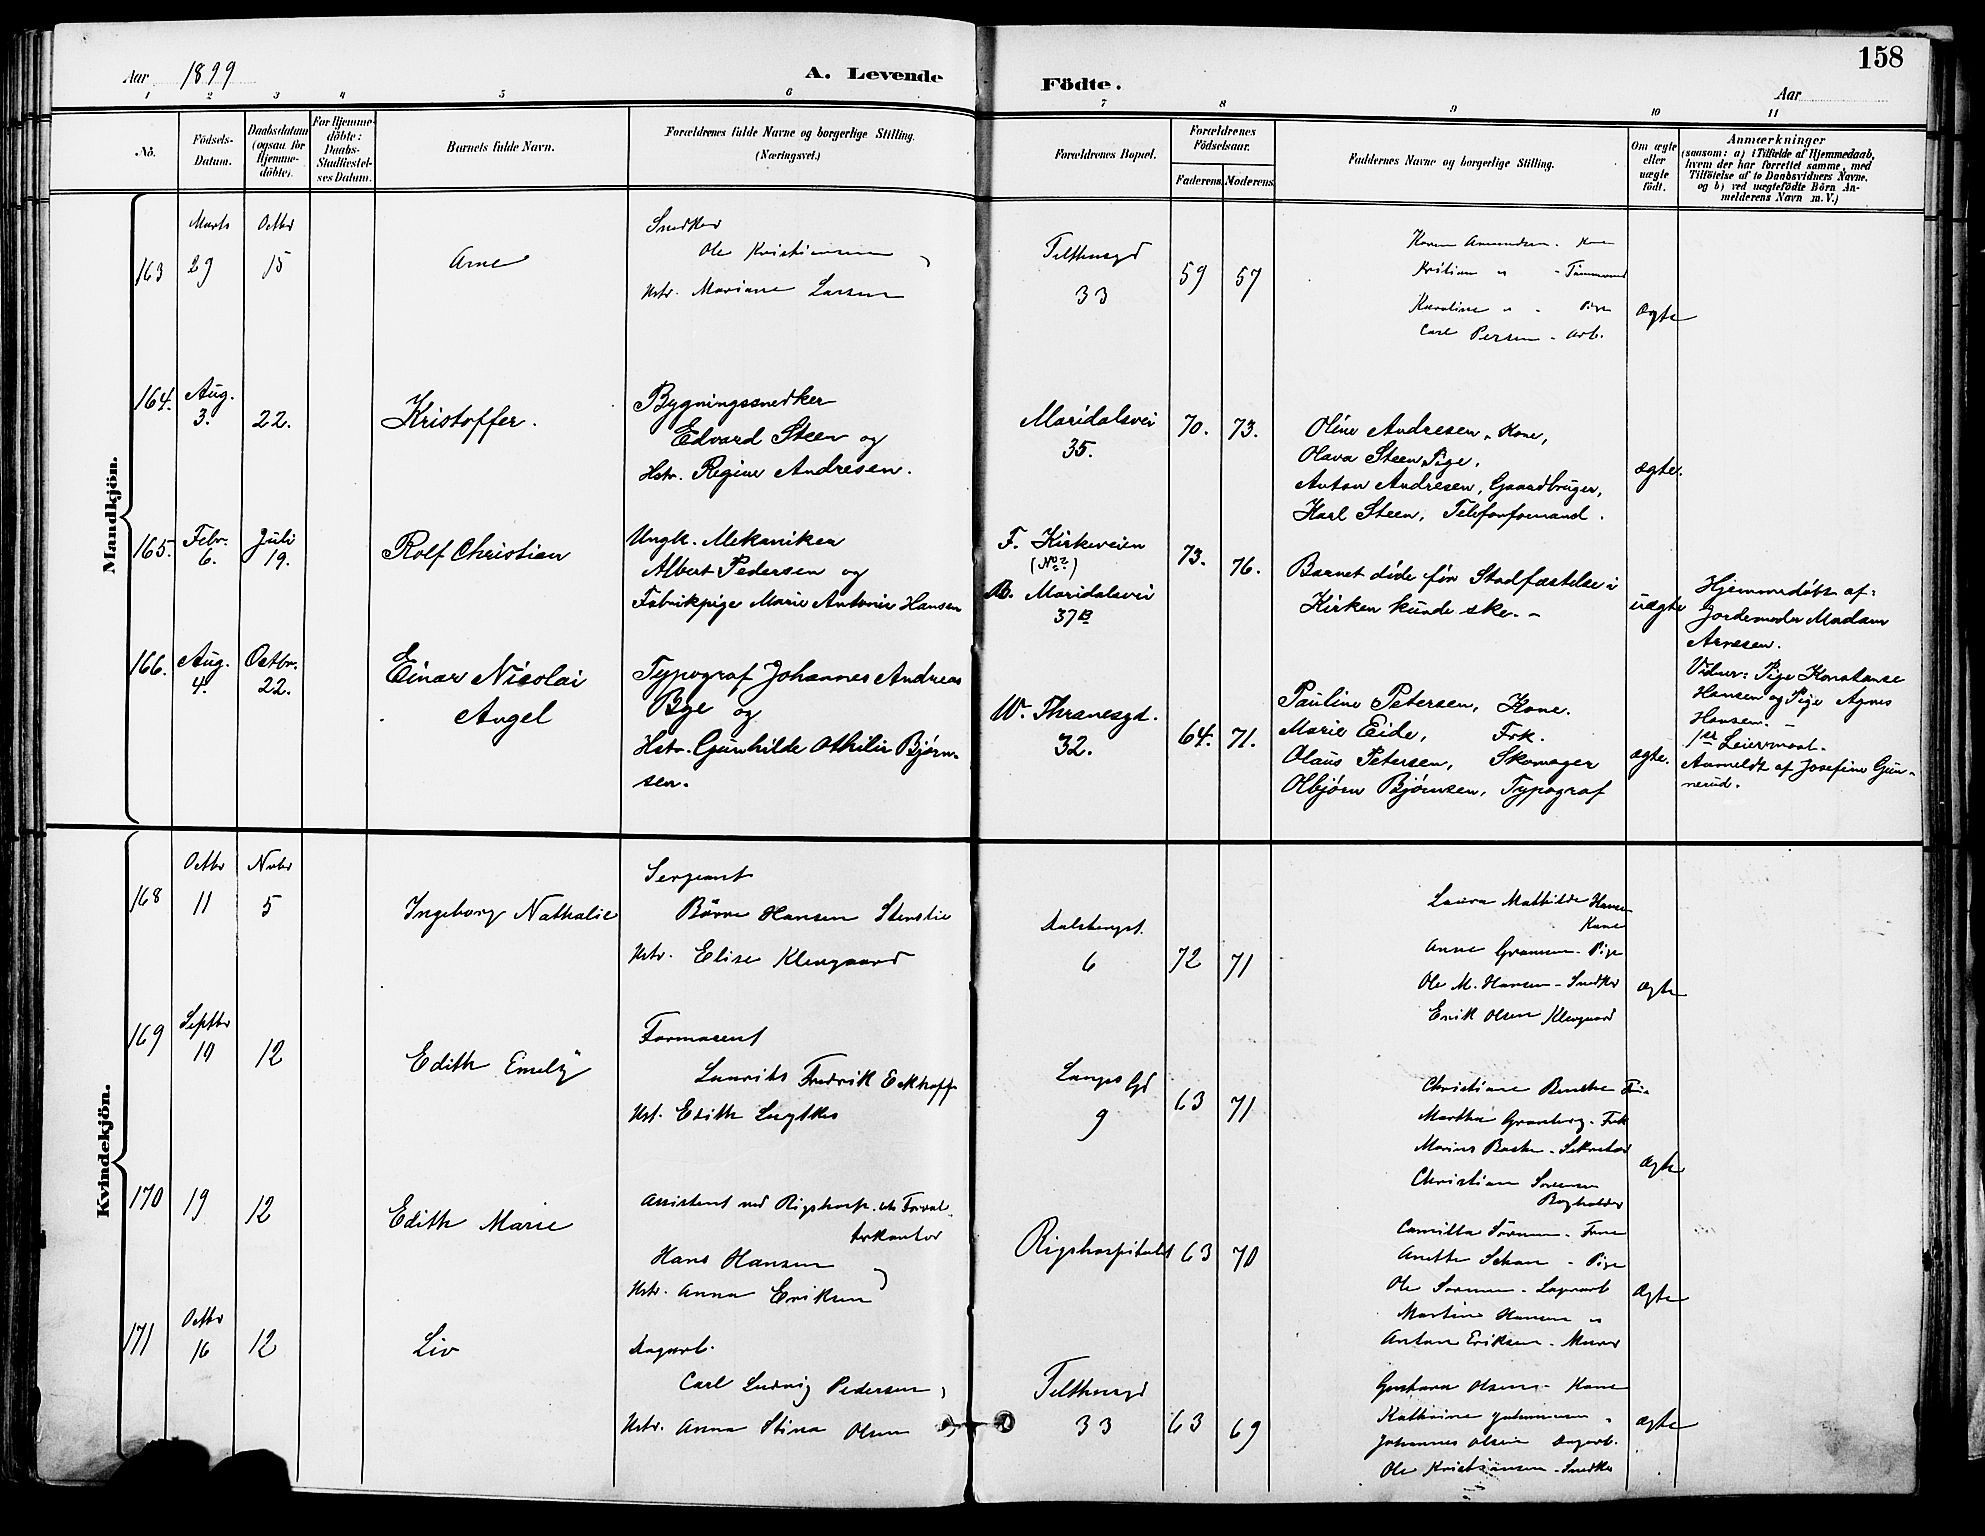 Aar 1899
A. Levende Födte.
158
Aar
1 2 3 4 5 6 7 8 9 10 11
No.
Födsels-Datum.
Daabsdatum (ogsaa for Hjemmedöbte).
For Hjemmedöbte: Daabs-Stadfæstelses Datum.
Barnets fulde Navn.
Forældrenes fulde Navne og borgerlige Stilling. (Næringsvei.)
Forældrenes Bopæl.
Forældrenes Födselsaar.
Faderens. Moderens.
Faddernes Navne og borgerlige Stilling.
Om ægte eller uægte födt.
Anmærkninger
(saasom: a) i Tilfælde af Hjemmedaab, hvem der har forrettet samme, med Tilföielse af to Daabsvidners Navne, og b) ved uægtefödte Börn Anmelderens Navn m. V.)
Mandkjön.
163
Marts 29
Octbr 15
Arne
Snedker
Ole Kristiansen
Hstr. Mariane Larsen
Telthusgd
33
59
57
Karen Amundsen - Kone
Kristian " - Tømmermd
Karoline " - Pige
Carl Persen - Arb.
ægte
164.
Aug. 3.
22.
Kristoffer.
Bygningssnedker
Edvard Steen og
Hstr. Regine Andresen.
Maridalsvei
35.
70.
73.
Oline Andresen, Kone,
Olava Steen Pige,
Anton Andresen, Gaardbruger,
Karl Steen, Telefonformand.
ægte.
165.
Febr. 6.
Juli 19.
Rolf Christian
Ungk. Mekaniker
Albert Pedersen og
Fabrikpige Marie Antonie Hansen
F. Kirkeveien
(No 2)
B. Maridalsvei
37B
73.
76.
Barnet døde før Stadfæstelse i
Kirken kunde ske. -
uægte
Hjemmedøbt af:
Jordemoder Madam
Arnesen.
Vidner: Pige Konstanse
Hansen og Pige Agnes
Hansen. -
1ste Leiermaal.
Anmeldt af Josefine Gun-
nerud.
166.
Aug. 4.
Octbr. 22.
Einar Nicolai
Angel
Typograf Johannes Andreas
Bye og
Hstr. Gunhilde Othilie Bjørn-
sen.
W. Thranesgd.
32.
64.
71.
Pauline Petersen, Kone.
Marie Eide, Frk.
Olaus Petersen, Skomager
Olbjørn Bjørnsen, Typograf
ægte.
Kvindekjön.
168
Octbr 11
Nvbr 5
Ingeborg Nathalie
Sergeant
Børre Hansen Stenstie
Hstr. Elise Klevgaard
Dalsbergst.
6
72
71
Laura Mathilde Hansen
Kone
Anne Gramsen - Pige
Ole M. Hansen - Snedker
Erik Olsen Klevgaard
ægte
169
Septbr 10
12
Edith Emely
Farmaceut
Laurits Fredrik Eckhoff
Hst. Edith Lugtkes
Langes Gd
9
63
71
Martha Granberg - Frk
Christian Sørensen
Bogholder
ægte
170
19
12
Edith Marie
Assistent ved Rigshosp.
Hans Hansen
Hstr. Anna Eriksen
Rigshospitalet
63
70
Camilla Sørensen - Frue
Anette Schau - Pige
Ole Sørensen - Lagerarb
Martin Hansen "
Anton Eriksen - Murer
ægte
171
Octbr 16
12
Liv
Dagarb.
Carl Ludvig Pedersen
Hstr. Anna Stina Olsen
Telthusgd
33
63
69
Gustava Olsen - Kone
Kathrine Johannesen "
Johannes Olsen Dagarb.
Ole Kristiansen - Snedker
ægte